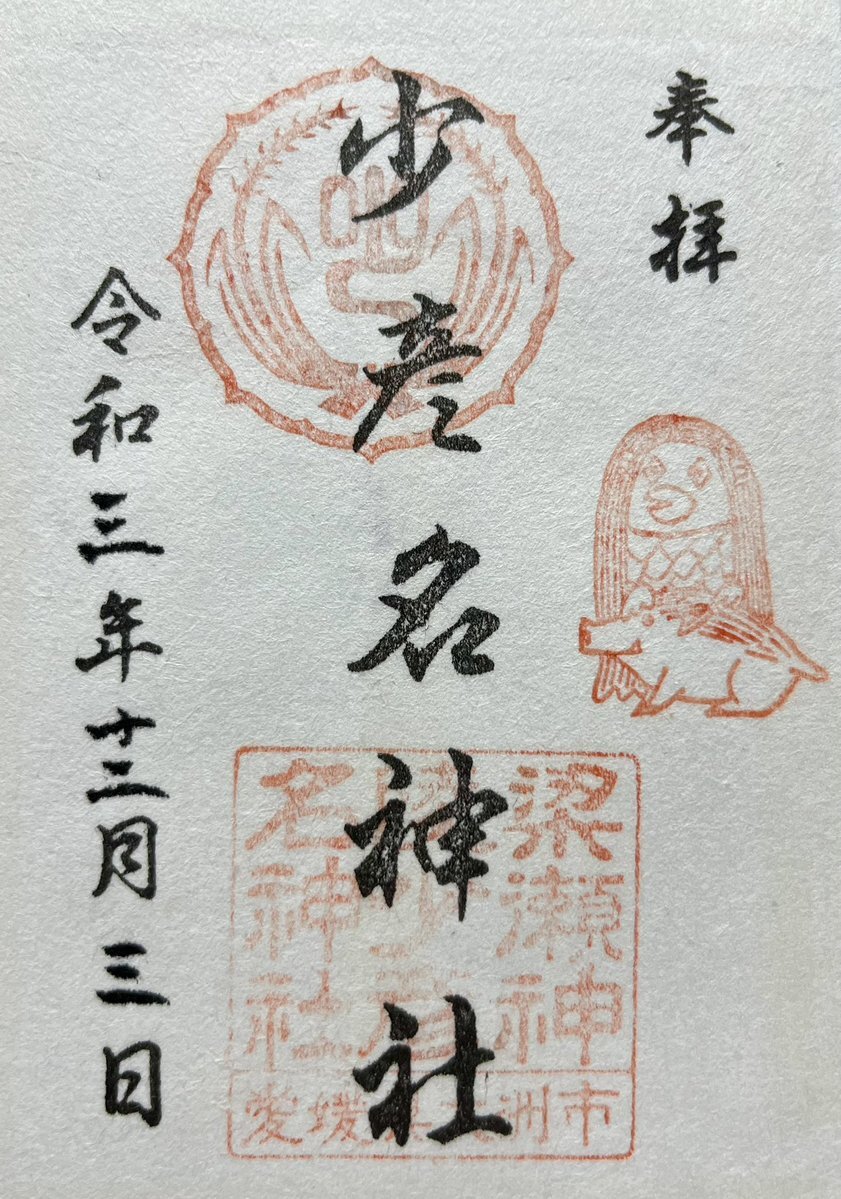 奉拝
少彦名神社
令和三年十二月三日
梁瀬神
少彦
名神社
愛媛県大洲市